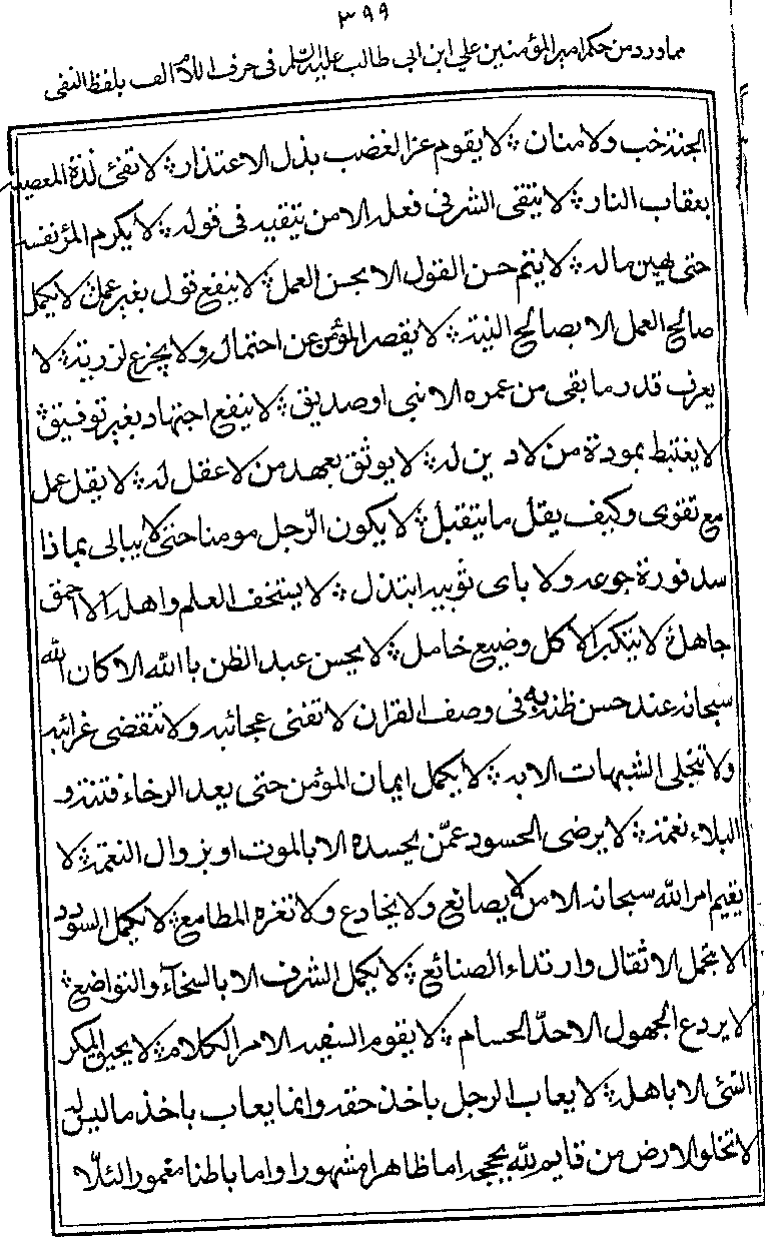 ٣٩٩
مما ورد من حكم امير المؤمنين علي ابن ابي طالب عليه السلم في حرف اللام الف بلفظ النفي
الجنة خب ولا منان ؛ لا يقوم عز الغضب بذل الاعتذار ؛ لا تفئ لذة المعصية
بعقاب النار ؛ لا يتقى الشر فى فعله الا من يتقيه فى قوله ؛ لا يكرم المرؤ نفسه
حتى يهين ماله ؛ لا يتم حسن القول الا بحسن العمل ؛ لا ينفع قول بغير عمل ؛ لا يكمل
صالح العمل الا بصالح النية ؛ لا يقصر المؤمن عن احتمال ولا يجزع لزرية ؛ لا
يعرف قدر ما بقى من عمره الا نبى او صديق ؛ لا ينفع اجتهاد بغير توفيق ؛
لا يغتبط بمودة من لا دين له ؛ لا يوثق بعهد من لا عقل له ؛ لا يقل عمل
مع تقوى وكيف يقل ما يتقبل ؛ لا يكون الرّجل مومنا حتى لا يبالى بماذا
سد فورة جوعه ولا باى ثوبيه ابتذل ؛ لا يستخف العلم واهله الا احمق
جاهل ؛ لا يتكبر الا كل وضيع خامل ؛ لا يحسن عبد الظن باالله الا كان الله
سبحانه عند حسن ظنه به فى وصف القران لا تفنى عجائبه ولا تنقضى غرائبه
ولا تنجلى الشبهات الا به ؛ لا يكمل ايمان المؤمن حتى يعد الرخاء فتنة و
البلاء نعمة ؛ لا يرضى الحسود عمّن يحسده الا بالموت او بزوال النعمة ؛ لا
يقيم امر الله سبحانه الا من لا يصانع ولا يخادع ولا تغره المطامع ؛ لا يكمل السودد
الا بتحمل الاثقال وارتداء الصنائع ؛ لا يكمل الشرف الا بالسخآء والتواضع ؛
لا يردع الجهول الا حدّ الحسام ؛ لا يقوم السفيه الا مر الكلام ؛ لا يحيق المكر
السّئ الا باهله ؛ لا يعاب الرجل باخذ حقه وانما يعاب باخذ ما ليس له
لا تخلو الارض من قايم لله بحججه اما ظاهرا مشهورا واما باطنا مغمورا لئلّا